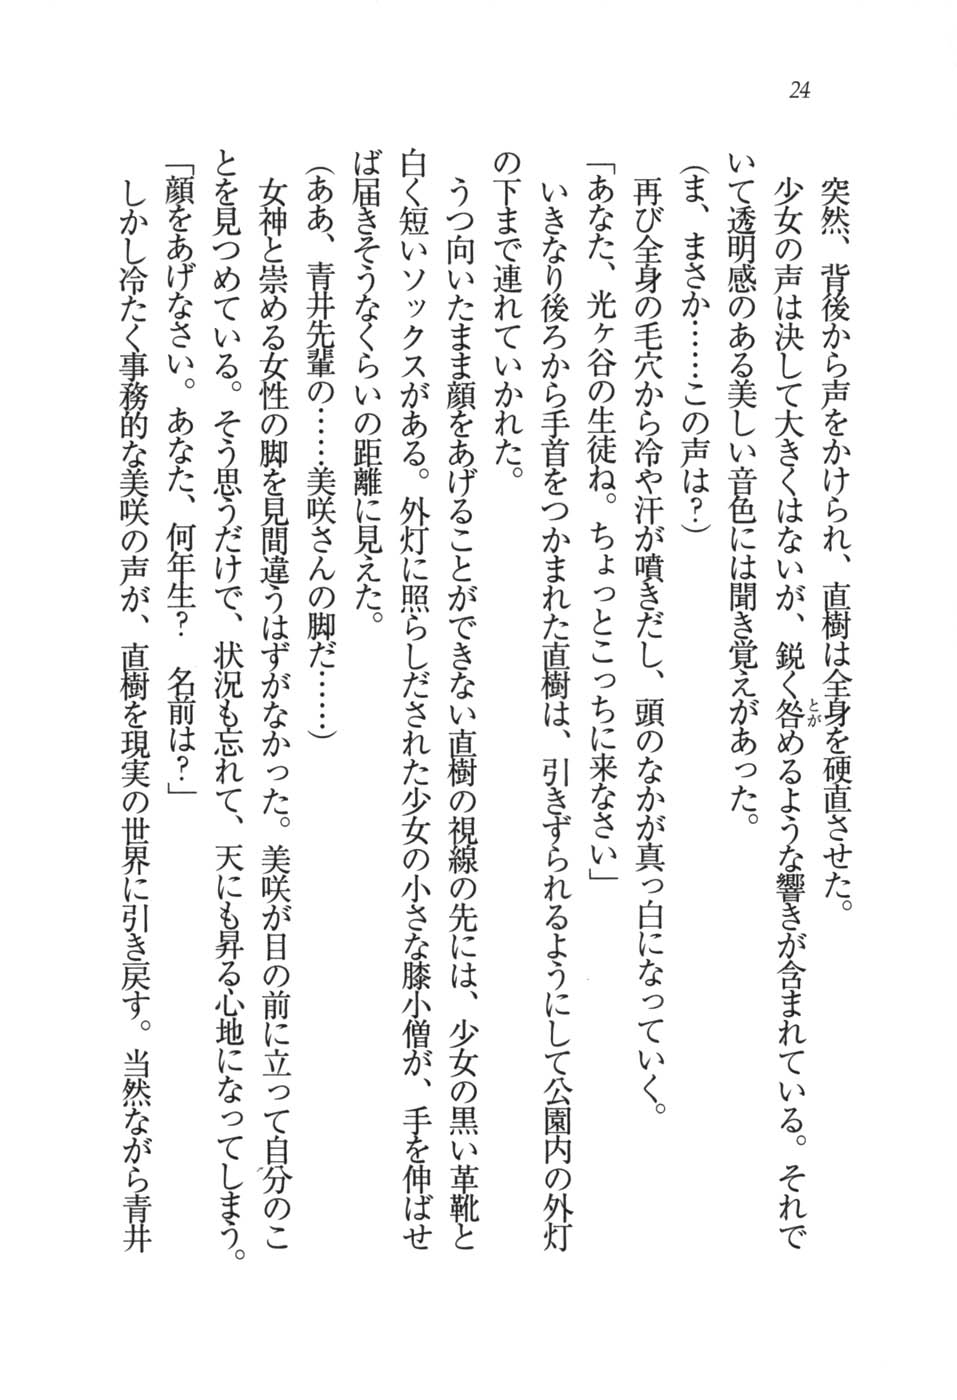 24
突然、背後から声をかけられ、直樹は全身を硬直させた。
少女の声は決して大きくはないが、鋭く咎めるような響きが含まれている。それで
とが
いて透明感のある美しい音色には聞き覚えがあった。
(ま、まさか……この声は?)
再び全身の毛穴から冷や汗が噴きだし、頭のなかが真っ白になっていく。
「あなた、光ヶ谷の生徒ね。ちょっとこっちに来なさい」
いきなり後ろから手首をつかまれた直樹は、引きずられるようにして公園内の外灯
の下まで連れていかれた。
うつ向いたまま顔をあげることができない直樹の視線の先には、少女の黒い革靴と
白く短いソックスがある。外灯に照らしだされた少女の小さな膝小僧が、手を伸ばせ
ば届きそうなくらいの距離に見えた。
(ああ、青井先輩の……美咲さんの脚だ……)
女神と崇める女性の脚を見間違うはずがなかった。美咲が目の前に立って自分のこ
とを見つめている。そう思うだけで、状況も忘れて、天にも昇る心地になってしまう。
「顔をあげなさい。あなた、何年生? 名前は?」
しかし冷たく事務的な美咲の声が、直樹を現実の世界に引き戻す。当然ながら青井